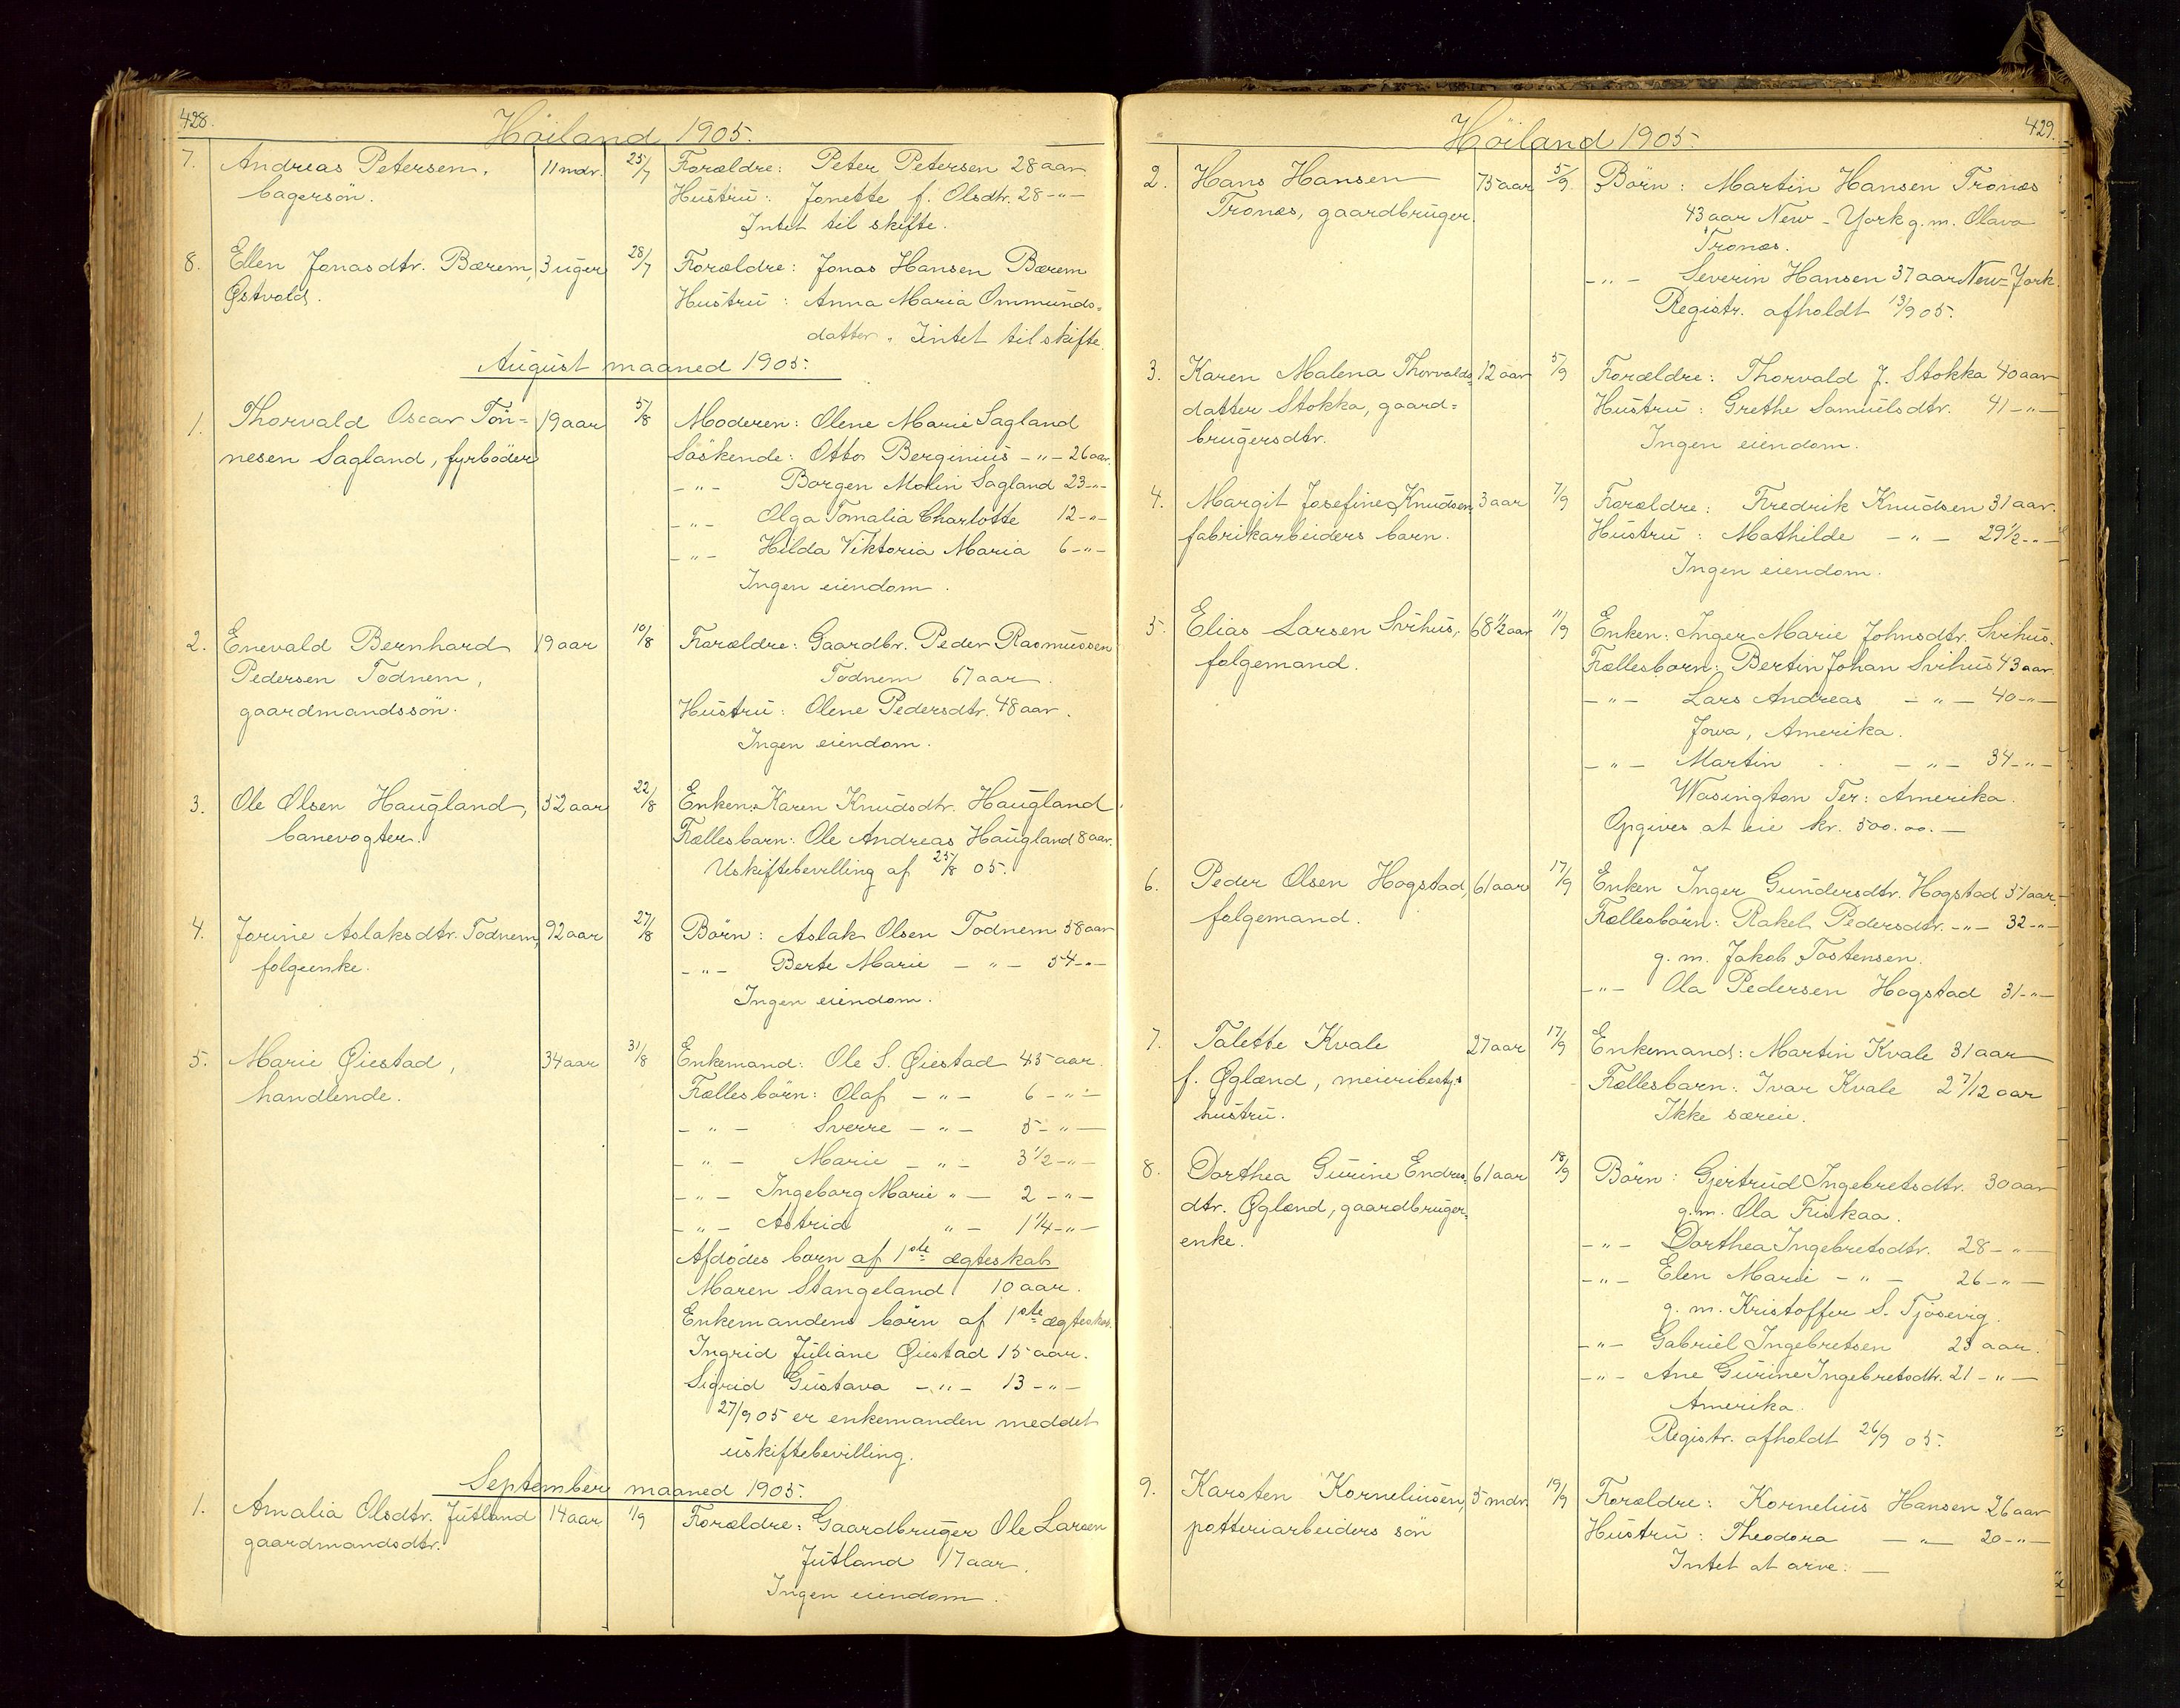 428.
Höiland 1905.
7. Andreas Petersen, 11 mdr. 25/7 Forældre: Peter Petersen 28 aar
bagersön. Hustru: Jonette f. Olsdtr. 28 -"-
Intet til skifte.
8. Ellen Jonasdtr. Bærem, 3 uger 28/7 Forældre: Jonas Hansen Bærem
Østvold. Hustru: Anna Maria Ommunds=
datter. Intet til skifte.
August maaned 1905.
1. Thorvald Oscar Tön= 19 aar 5/8 Moderen: Olene Marie Sagland
nesen Sagland, fyrböder Söskende: Otto Berginius -"- 26 aar.
-"- Borgen Malin Sagland 23 -"-
-"- Olga Tomalia Charlotte 12 -"-
-"- Hilda Viktoria Maria 6 -"-
Ingen eiendom.
2. Enevald Bernhard 19 aar 10/8 Forældre: Gaardbr. Peder Rasmussen
Pedersen Todnem, Todnem 67 aar.
gaardmandssön. Hustru: Olene Pedersdtr. 48 aar.
Ingen eiendom.
3. Ole Olsen Haugland, 52 aar 22/8 Enken: Karen Knudsdtr. Haugland
banevogter. Fællesbarn: Ole Andreas Haugland 8 aar.
Uskiftebevilling af 25/8 05.
4. Jorine Aslaksdtr. Todnem, 92 aar 27/8 Börn: Aslak Olsen Todnem 58 aar
folgeenke. -"- Berte Marie -"- 54 -"-
Ingen eiendom.
5. Marie Øiestad, 34 aar 31/8 Enkemand: Ole S. Øiestad 45 aar.
handlende. Fællesbörn: Olaf -"- 6 -"-
-"- Sverre -"- 5 -"-
-"- Marie -"- 3 1/2 -"-
-"- Ingeborg Marie "- 2 -"-
-"- Astrid "- 1 1/4 -"-
Afdödes barn af 1ste ægteskab
Maren Stangeland 10 aar.
Enkemandens börn af 1ste ægteskab.
Ingrid Juliane Øiestad 15 aar.
Sigrid Gustava -"- 13 -"-
27/9 05 er enkemanden meddelt
uskiftebevilling.
September maaned 1905.
1. Amalia Olsdtr. Jutland 14 aar 1/9 Forældre: Gaardbruger Ole Larsen
gaardmandsdtr. Jutland 17 aar.
Ingen eiendom.
429.
Höiland 1905.
2. Hans Hansen 75 aar 5/9 Börn: Martin Hansen Tronæs
Tronæs, gaardbruger. 43 aar New-York g. m. Olava
Tronæs.
-"- Severin Hansen 37 aar New=York.
Registr. afholdt 13/9 05.
3. Karen Malena Thorvalds= 12 aar 5/9 Forældre: Thorvald J. Stokka 40 aar
datter Stokka, gaard= Hustru: Grethe Samuelsdtr. 41 -"-
brugersdtr. Ingen eiendom.
4. Margit Josefine Knudsen, 3 aar 7/9 Forældre: Fredrik Knudsen 31 aar.
fabrikarbeiders barn. Hustru: Mathilde -"- 29 1/2 -"-
Ingen eiendom.
5. Elias Larsen Svihus, 68 1/2 aar 11/9 Enken: Inger Marie Johnsdtr. Svihus.
folgemand. Fællesbörn: Bertin Johan Svihus 43 aar.
-"- Lars Andreas -"- 40 -"-
Jowa, Amerika.
-"- Martin -"- 34 -"-
Wasington Ter: Amerika.
Opgives at eie kr. 500.00. -
6. Peder Olsen Hogstad, 61 aar 17/9 Enken Inger Gundersdtr. Hogstad 51 aar.
folgemand. Fællesbörn: Rakel Pedersdtr. -"- 32 -"-
g. m. Jakob Tostensen.
-"- Ola Pedersen Hogstad 31 -"-
7. Talette Kvale 27 aar 17/9 Enkemand: Martin Kvale 31 aar
f. Øglænd, meieribestyrs Fællesbarn: Ivar Kvale 2 7/12 aar
hustru. Ikke særeie.
8. Dorthea Gurine Endres= 61 aar 18/9 Börn: Gjertrud Ingebretsdtr. 30 aar
dtr. Øglænd, gaardbruger= g. m. Ola Friskaa.
enke. -"- Dorthea Ingebretsdtr. 28 -"-
-"- Elen Marie -"- 26 -"-
g. m. Kristoffer S. Tjösevig.
-"- Gabriel Ingebretsen 23 aar.
-"- Ane Gurine Ingebretsdtr. 21 -"-
Amerika.
Registr. afholdt 26/9 05.
9. Karsten Korneliusen, 5 mdr. 19/9 Forældre: Kornelius Hansen 26 aar
potteriarbeiders sön Hustru: Theodora -"- 20 -"-
Intet at arve. -